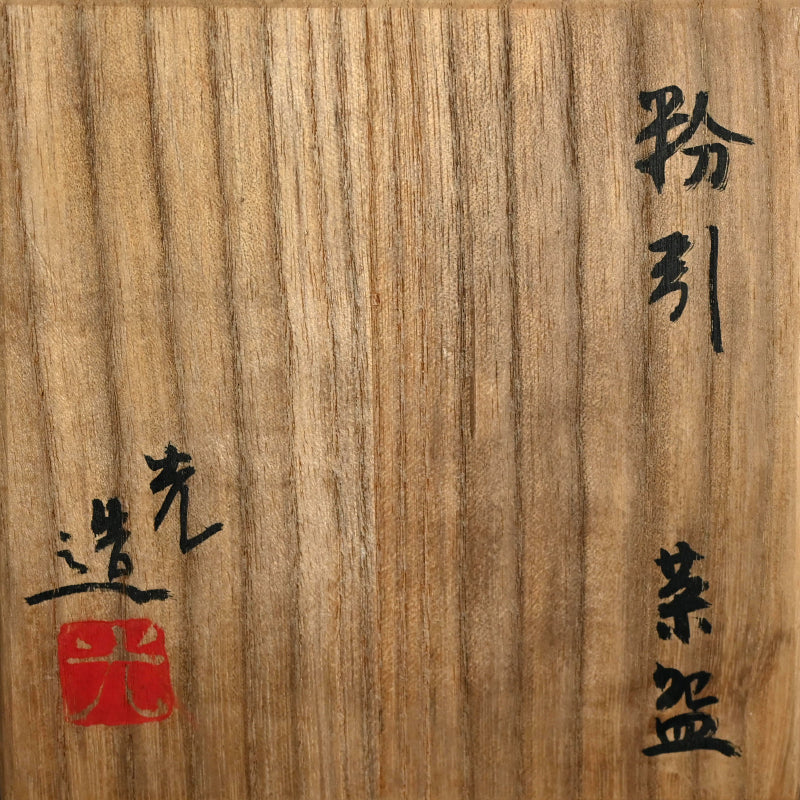 粉引
茶盌
光造
光